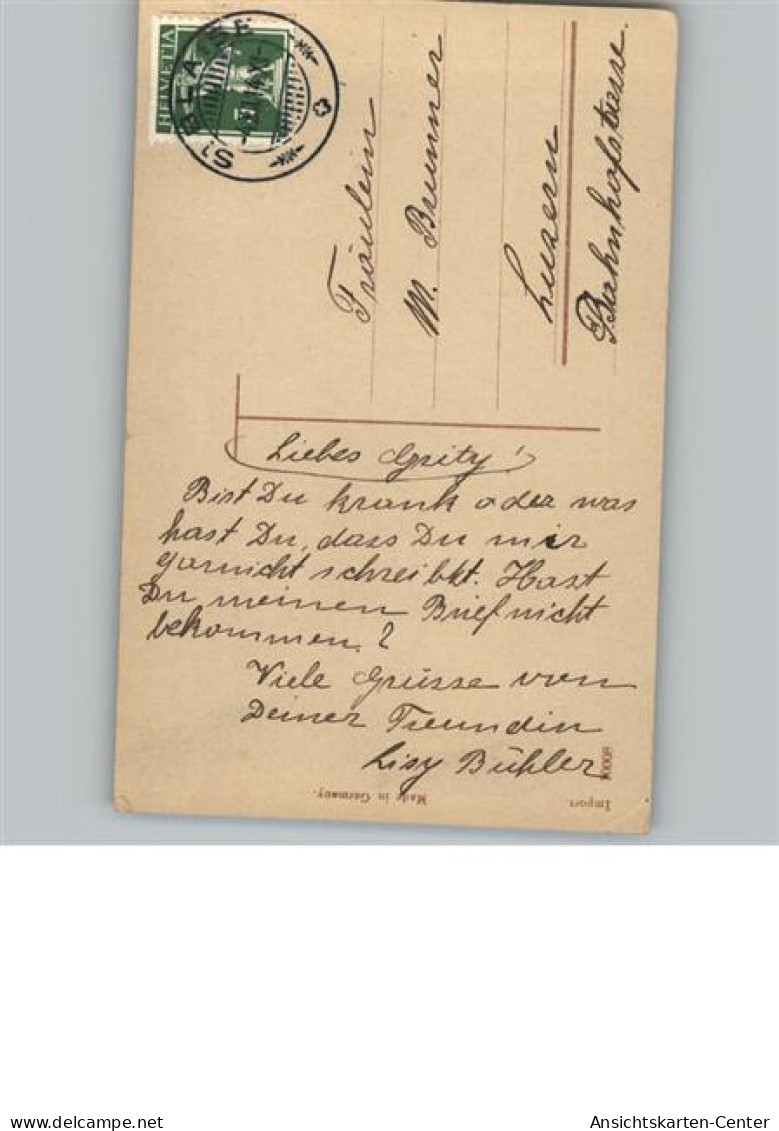 HELVETIA
Fräulein
M. Brunner
Luzern
Bahnhofstrasse.
Liebes Grity!
Bist Du krank oder was
hast Du, dass Du mir
garnicht schreibkt. Hast
Du meinen Brief nicht
bekommen?
Viele Grüsse von
Deiner Freundin
Lisy Bühler
Made in Germany.
Import
Ansichtskarten-Center